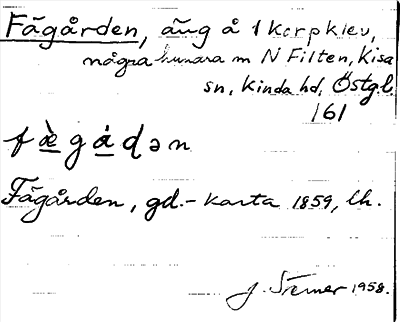 Fägården, äng å 1 Korpklev,
några hundra m N Filten, Kisa
sn, Kinda hd, Östgl.
161
f æ̀ g å̀ ḍ ə n
Fägården, gd.- karta 1859, lh.
J. Stemer 1958.